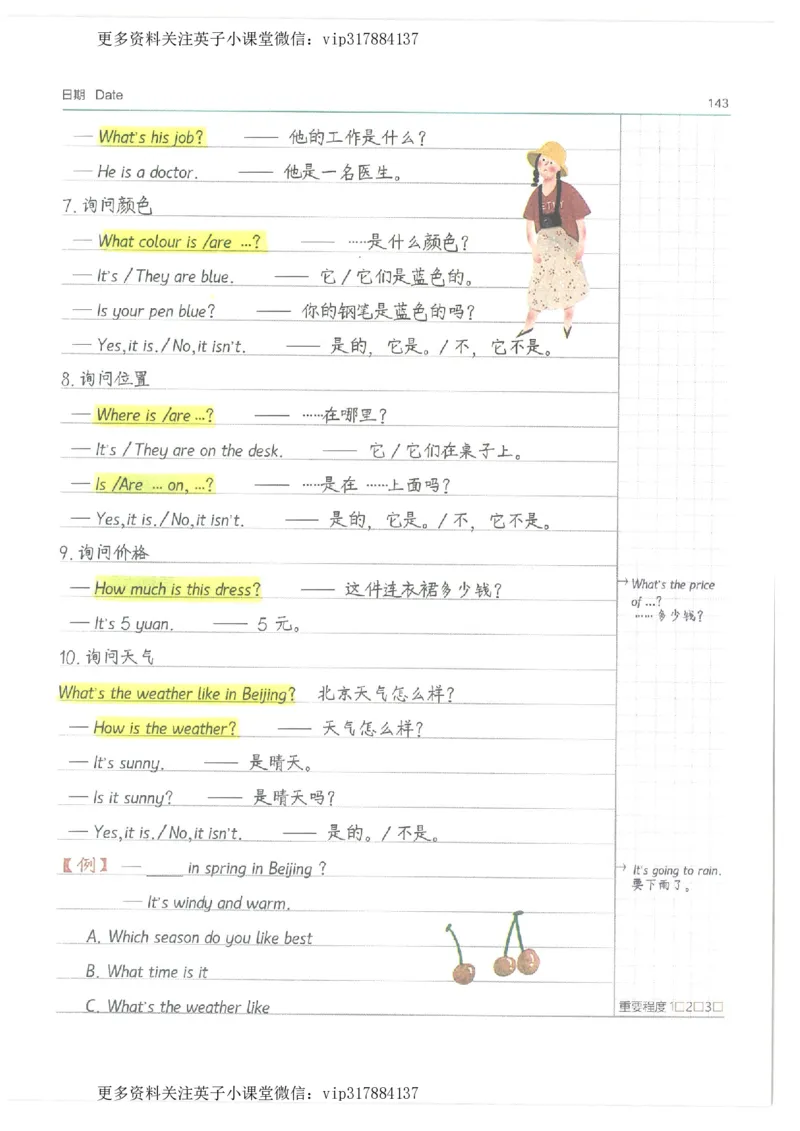 更多资料关注英子小课堂微信：vip317884137
日期 Date
143
— What's his job? —— 他的工作是什么?
— He is a doctor. —— 他是一名医生。
7. 询问颜色
— What colour is /are ...? —— ……是什么颜色?
— It's / They are blue. —— 它 / 它们是蓝色的。
— Is your pen blue? —— 你的钢笔是蓝色的吗?
— Yes,it is. / No,it isn't. —— 是的，它是。/ 不，它不是。
8. 询问位置
— Where is /are ...? —— ……在哪里?
— It's / They are on the desk. —— 它 / 它们在桌子上。
— Is /Are ... on, ...? —— ……是在 ……上面吗?
— Yes,it is. / No,it isn't. —— 是的，它是。/ 不，它不是。
9. 询问价格
— How much is this dress? —— 这件连衣裙多少钱?
→ What's the price
of ...?
…… 多少钱?
— It's 5 yuan. —— 5 元。
10. 询问天气
What's the weather like in Beijing? 北京天气怎么样?
— How is the weather? —— 天气怎么样?
— It's sunny. —— 是晴天。
— Is it sunny? —— 是晴天吗?
— Yes,it is. / No,it isn't. —— 是的。/ 不是。
【例】 — ____ in spring in Beijing ?
→ It's going to rain.
要下雨了。
— It's windy and warm.
A. Which season do you like best
B. What time is it
C. What's the weather like
重要程度 1□2□3□
更多资料关注英子小课堂微信：vip317884137